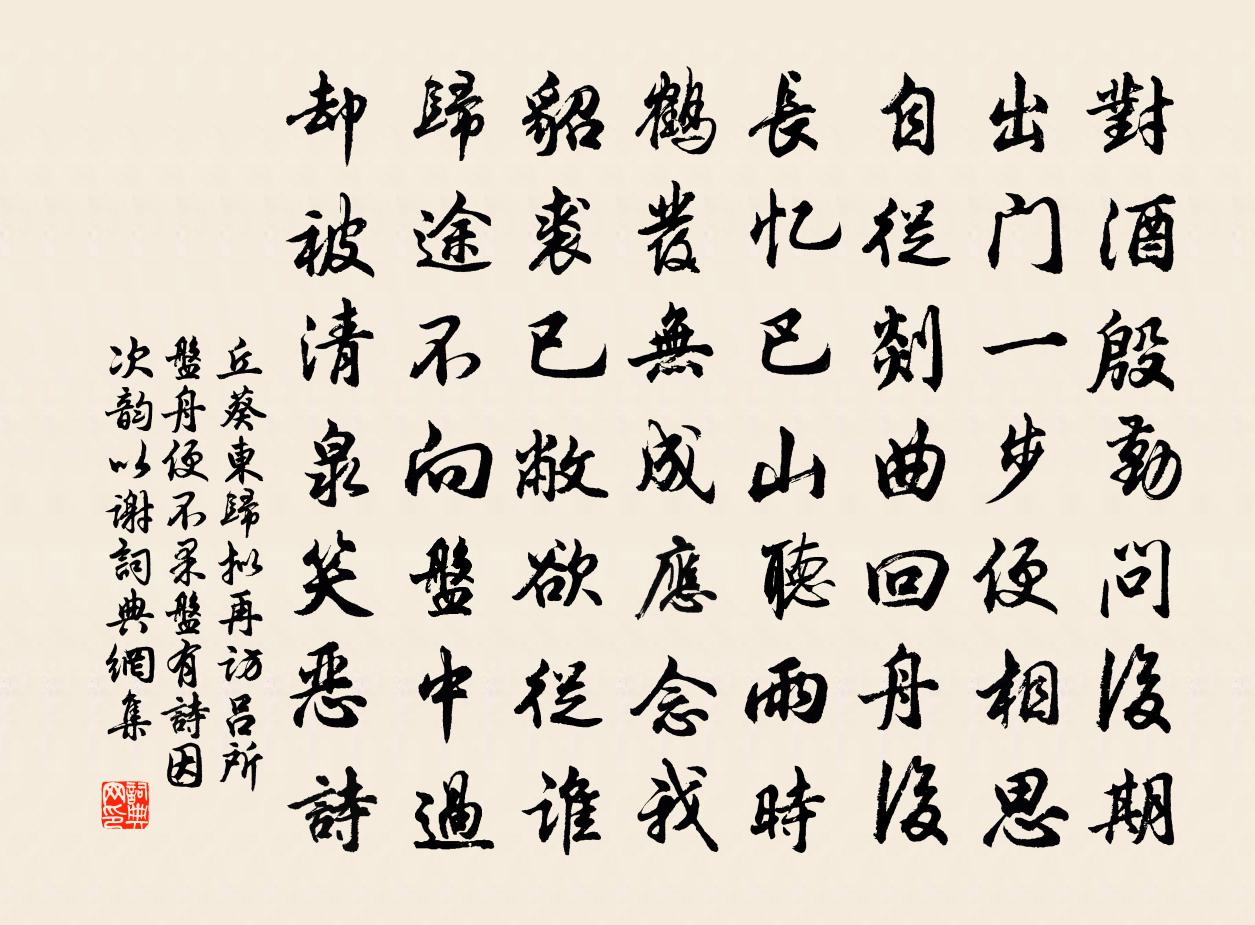 對酒殷勤問後期
出门一步便相思
自從剡曲回舟後
長忆巴山聽雨時
鶴發無成應念我
貂裘已敝欲從谁
歸途不向盤中過
却被清泉笑惡詩
丘葵東歸拟再访吕所
盤舟便不果盤有詩因
次韵以谢詞典網集
詞典网印